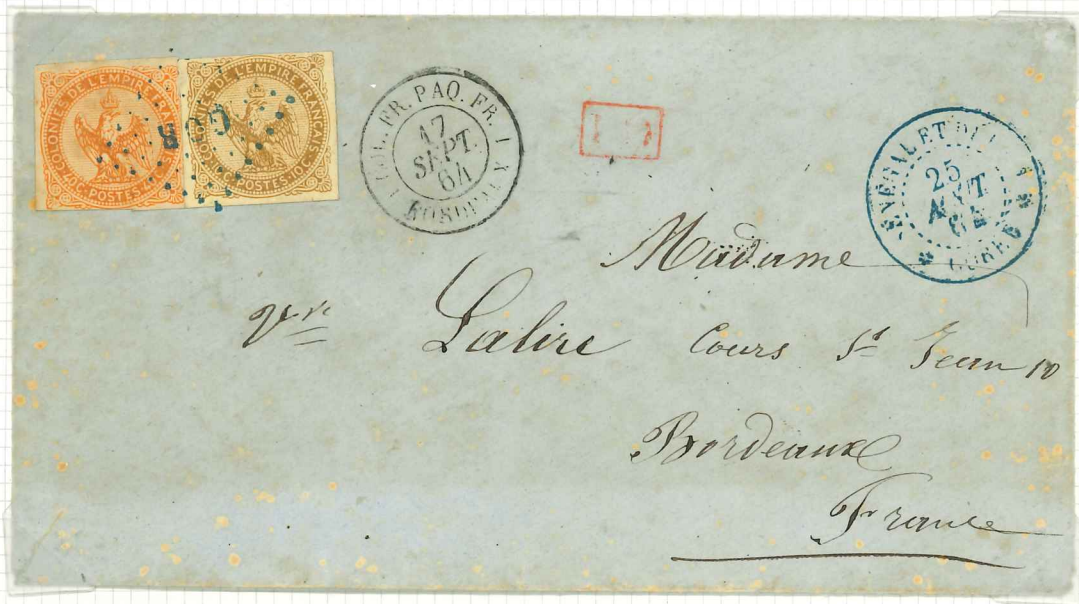 COLONIES DE L'EMPIRE FRANÇAIS
40C POSTES 40C
COLONIES DE L'EMPIRE FRANÇAIS
10C POSTES 10C
COL. FR. PAQ. FR. 1
17
SEPT.
64
BORDEAUX
SÉNÉGAL ET
25
AOUT
64
GORÉE
Madame
Lalire Cours St Jean 10
Bordeaux
France